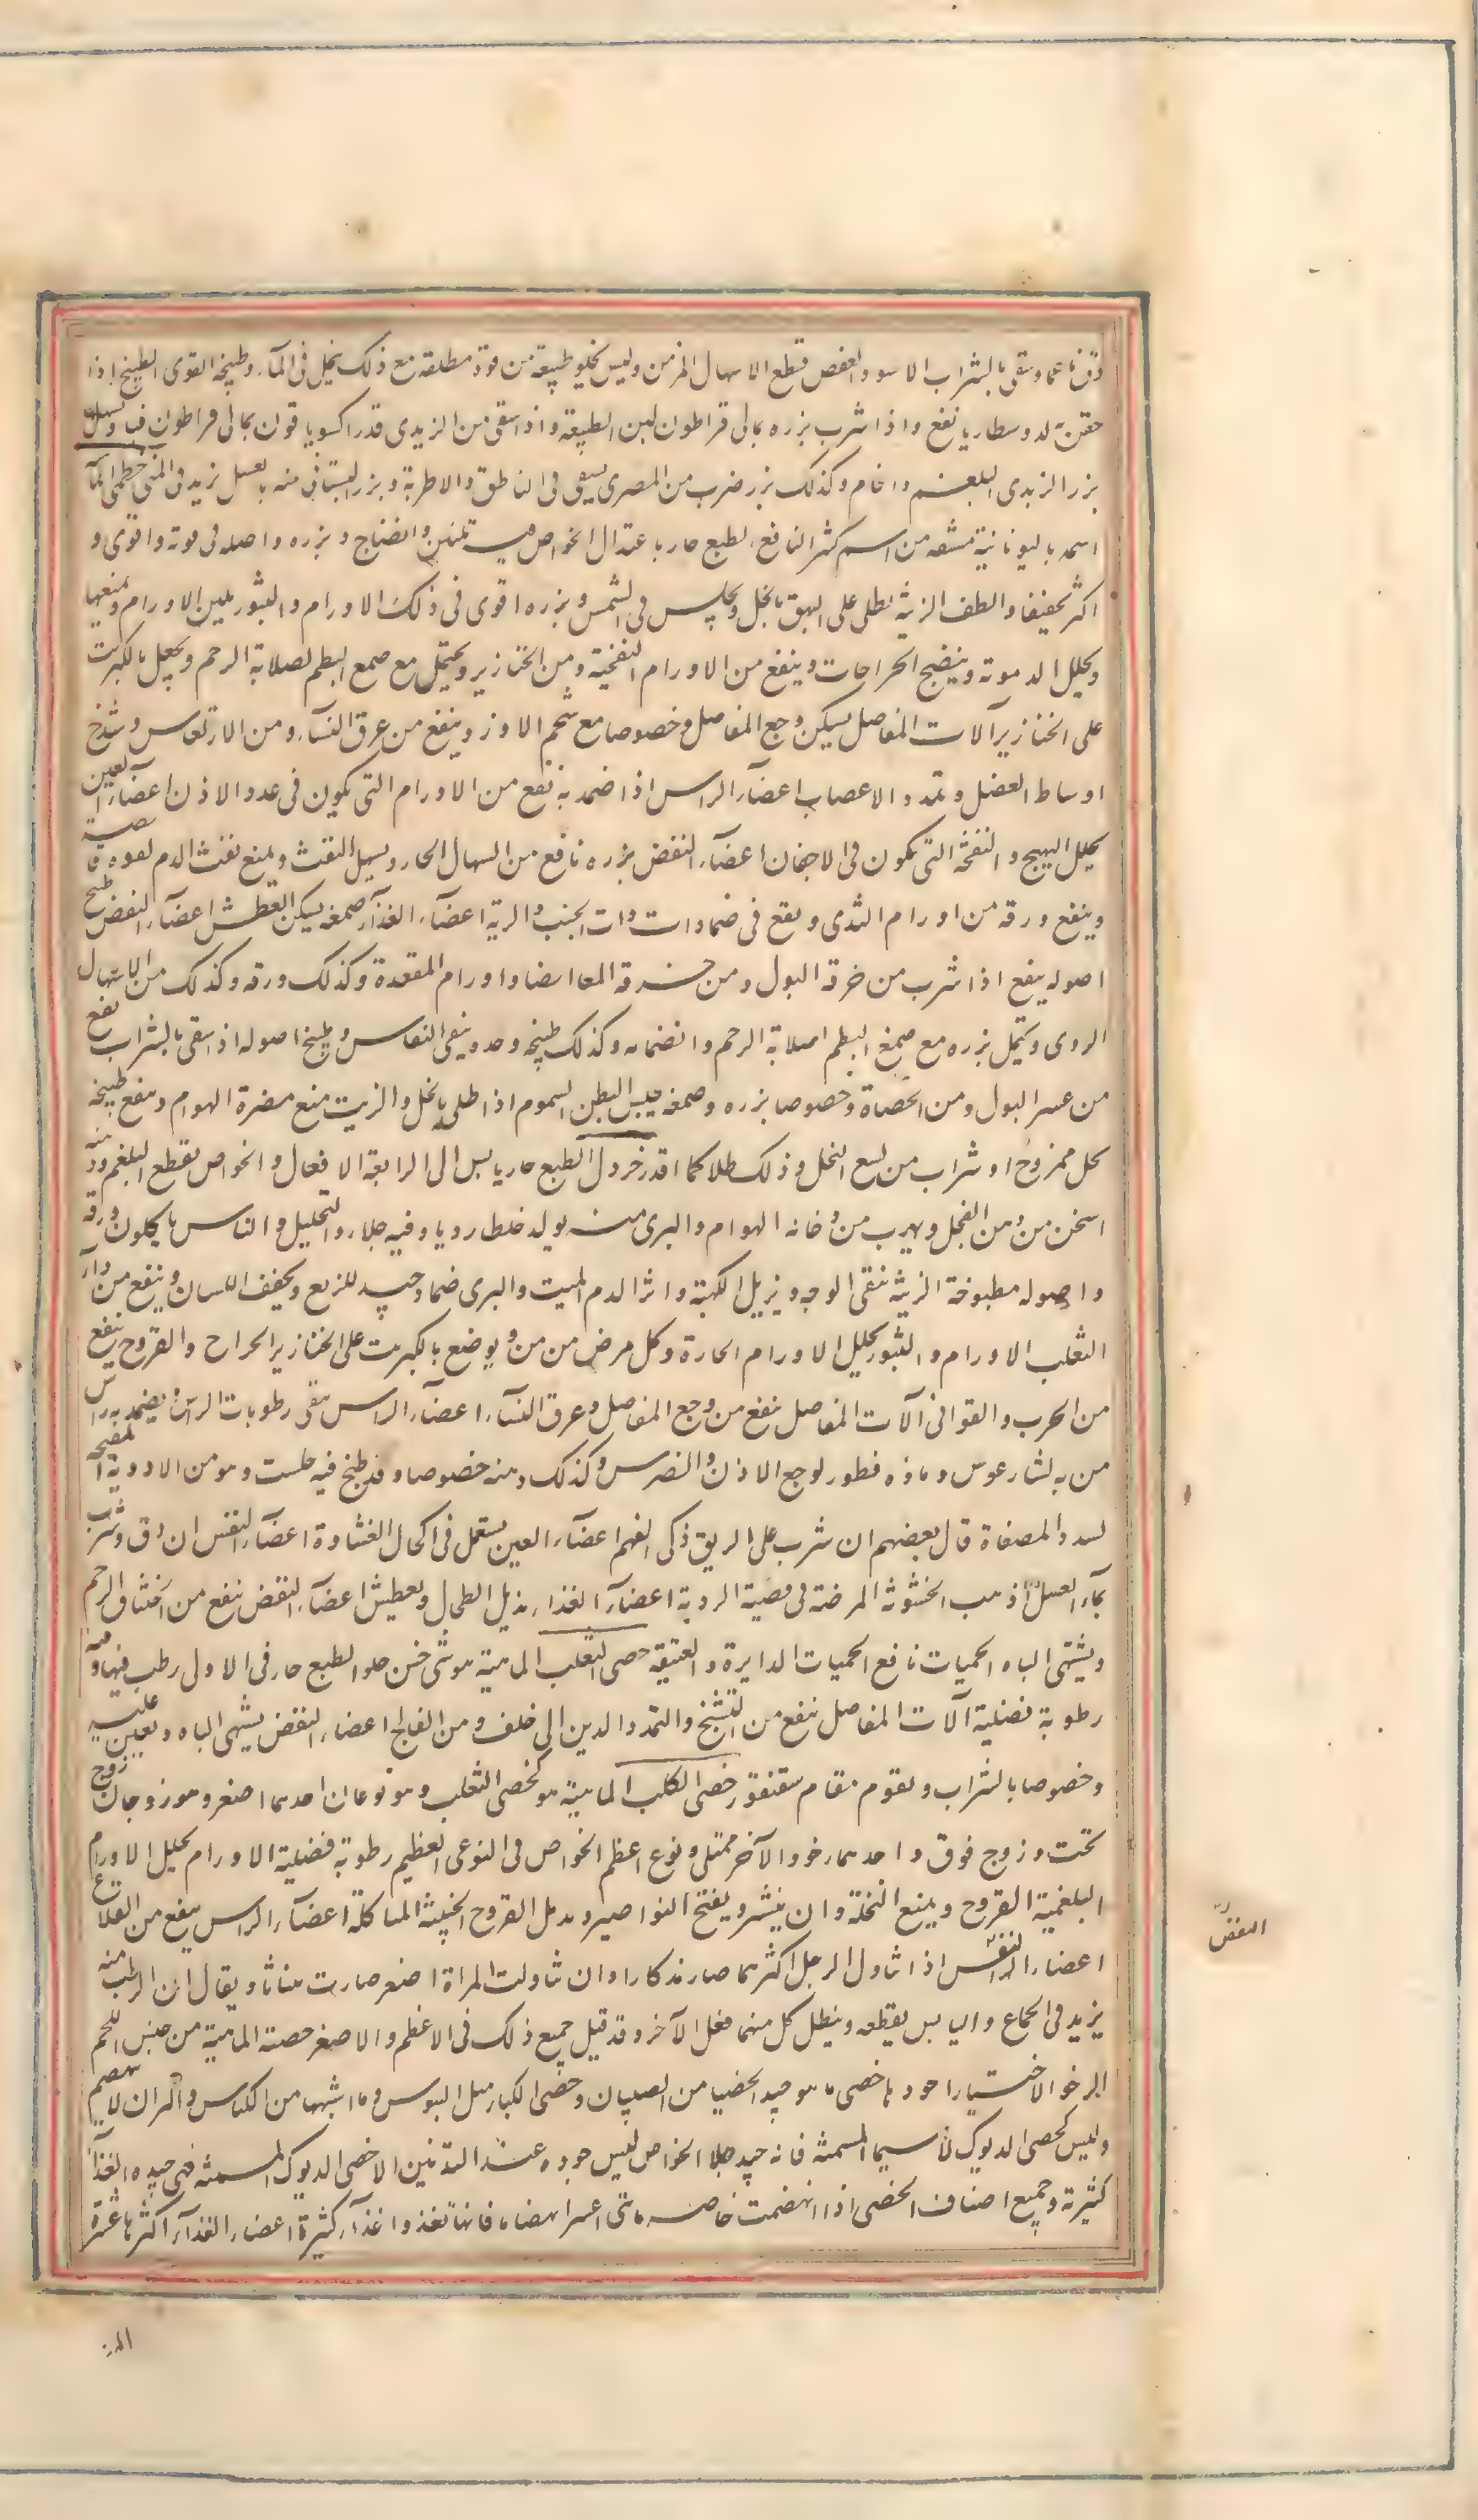 دق ناعما وسقى بالشراب الاسود والعفص قطع الاسهال المزمن وليس يخلو طبيعته من قوة مطلقة مع ذلك ينحل فى المآء وطبيخه القوى الطبخ اذا
حقن به لدوسنطاريا نفع واذا شرب بزره بمالى قراطون لين الطبيعة واذا سقى من الزبدى قدر اكسويا قون بمالى قراطون قيأ ويسهل
بزر الزبدى البلغم والخام وكذلك بزر ضرب من المصرى يسقى فى الناطق والاطرية وبزر البستانى منه بالعسل يزيد فى المنى خطمى الما
اسمه باليونانية مشتق من اسم كثير المنافع الطبع حار باعتدال الخواص فيه تليين وانضاج وبزره واصله فى قوته واقوى و
اكثر تجفيفا والطف الزينة يطلى على البهق بالخل ويجلس فى الشمس وبزره اقوى فى ذلك الاورام والبثور يلين الاورام ويمنعها
ويحلل الدموية وينضج الخراجات وينفع من الاورام النفخية ومن الخنازير ويحتمل مع صمع البطم لصلابة الرحم ويجعل بالكبريت
على الخنازير آلات المفاصل يسكن وجع المفاصل وخصوصا مع شحم الاوز وينفع من عرق النسآء ومن الارتعاس وشدخ
اوساط العضل وتمدد الاعصاب اعضآء الراس اذا ضمد به نفع من الاورام التى يكون فى غدد الاذن اعضآء العين
يحلل التهيج والنفخة التى تكون فى الاجفان اعضآء النفض بزره نافع من السعال الحار ويسهل النفث ويمنع نفث الدم لقوه قا بضة
وينفع ورقه من اورام الثدى ويقع فى ضمادات ذات الجنب والرية اعضآء الغذآء صمغه يسكن العطش اعضآء النفض طبيخ
اصوله ينفع اذا شرب من حرقة البول ومن حرقة المعا ايضا واورام المقعدة وكذلك ورقه وكذلك من الاسهال
الردى ويحتمل بزره مع صمغ البطم لصلابة الرحم وانضمامه وكذلك طبيخه وحده وينقى النفاس وطبيخ اصوله اذا سقى بالشراب نفع
من عسر البول ومن الحصاة وخصوصا بزره وصمغه يحبس البطن السموم اذا طلى بالخل والزيت منع مضرة الهوام وينفع طبيخه
بخل ممزوج او شراب من لسع النحل وذلك طلا كما اقدر خردل الطبع حار يابس الى الرابعة الافعال والخواص يقطع البلغم ودهنه
اسخن من دهن الفجل ويهرب من دخانه الهوام والبرى منه يولد خلطا رديا وفيه جلاء وتحليل والناس ياكلون ورقه
واصوله مطبوخة الزينة ينقى الوجه ويزيل الكهبة واثر الدم الميت والبرى ضماد جيد للزبع ويجفف اللسان وينفع من داء
الثعلب الاورام والبثور يحلل الاورام الحارة وكل مرض مزمن ويوضع بالكبريت على الخنازير الجراح والقروح ينفع
من الجرب والقوافى آلات المفاصل ينفع من وجع المفاصل وعرق النسآء اعضآء الراس ينقى رطوبات الراس ويضمد به راس
من به ليثارغوس وماؤه قطور لوجع الاذن والضرس وكذلك دهنه خصوصا وقد طبخ فيه حلتيت وهو من الادوية المفتحة
لسدد المصفاة قال بعضهم ان شرب على الريق ذكى الفهم اعضآء العين يستعمل فى اكحال الغشاوة اعضآء النفس ان دق وشرب
بمآء العسل اذهب الخشونة المزمنة فى قصبة الرية اعضآء الغذاء يذبل الطحال ويعطش اعضآء النفض ينفع من اختناق الرحم
ويشتهى الباه الحميات نافع الحميات الدايرة والعتيقة خصى الثعلب الماهية هو شى خشن حلو الطبع حار فى الاولى رطب فيها وفيه
رطوبة فضلية آلات المفاصل ينفع من التشنج والتمدد الذين الى خلف ومن الفالج اعضاء النفض يشهى الباه ويعين عليه
وخصوصا بالشراب ويقوم مقام سقنقور خصى الكلب الماهية هو كخصى الثعلب وهو نوعان احدهما اصغر وهو زوجان زوج
تحت وزوج فوق واحدهما رخو والآخر ممتلى ونوع اعظم الخواص فى النوعى العظيم رطوبة فضلية الاورام يحلل الاورام
البلغمية القروح ويمنع النملة وان ينتشر ويفتح النواصير ويدمل القروح الخبيثة المتاكلة اعضآء الراس ينفع من القلاع
اعضاء النفس اذا تناول الرجل اكثرهما صار مذكارا وان تناولت المراة اصغر صارت مئناثا ويقال ان الرطب منه
يزيد فى الجماع واليابس يقطعه ويبطل كل منهما فعل الآخر وقد قيل جميع ذلك فى الاعظم والاصغر خصية الماهية من جنس اللحم
الرخو الاختيار اجود ما خصى ما هو جيد الخضيا من الصبيان وخصى الكبار مثل التيوس وما اشبهها من الكباس والثيران لا ينهضم
وليس كخصى الديوك لا سيما المسمنة فانه جيد جلا الخواص ليس جوده عند التدنين الا خصى الديوك المسمنة فهى جيده الغذآ
كثيرة وجميع اصناف الخصى اذا انهضمت خاصه ما شى اعسر انهضاما فانها تغذوا غذآء كثيرة اعضاء الغذآء اكثرها عسرة
النفض
المز